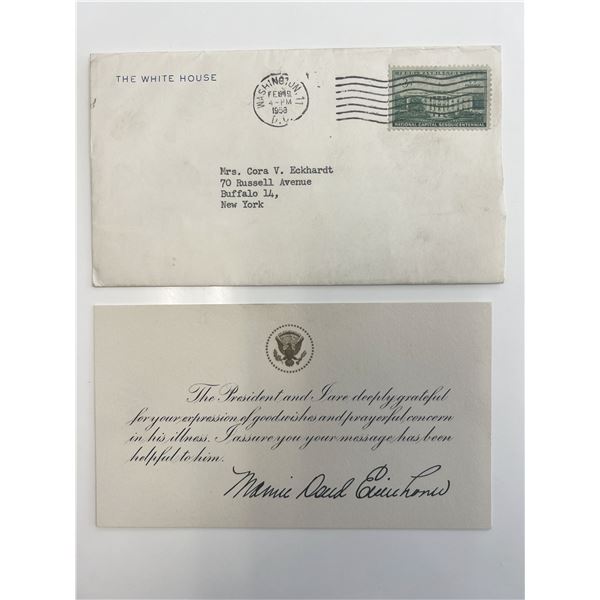 THE WHITE HOUSE
WASHINGTON, 11
FEB 19
4-PM
1958
D.C.
NATIONAL CAPITAL SESQUICENTENNIAL
Mrs. Cora V. Eckhardt
70 Russell Avenue
Buffalo 14,
New York
The President and I are deeply grateful
for your expression of good wishes and prayerful concern
in his illness. I assure you your message has been
helpful to him.
Mamie Doud Eisenhower